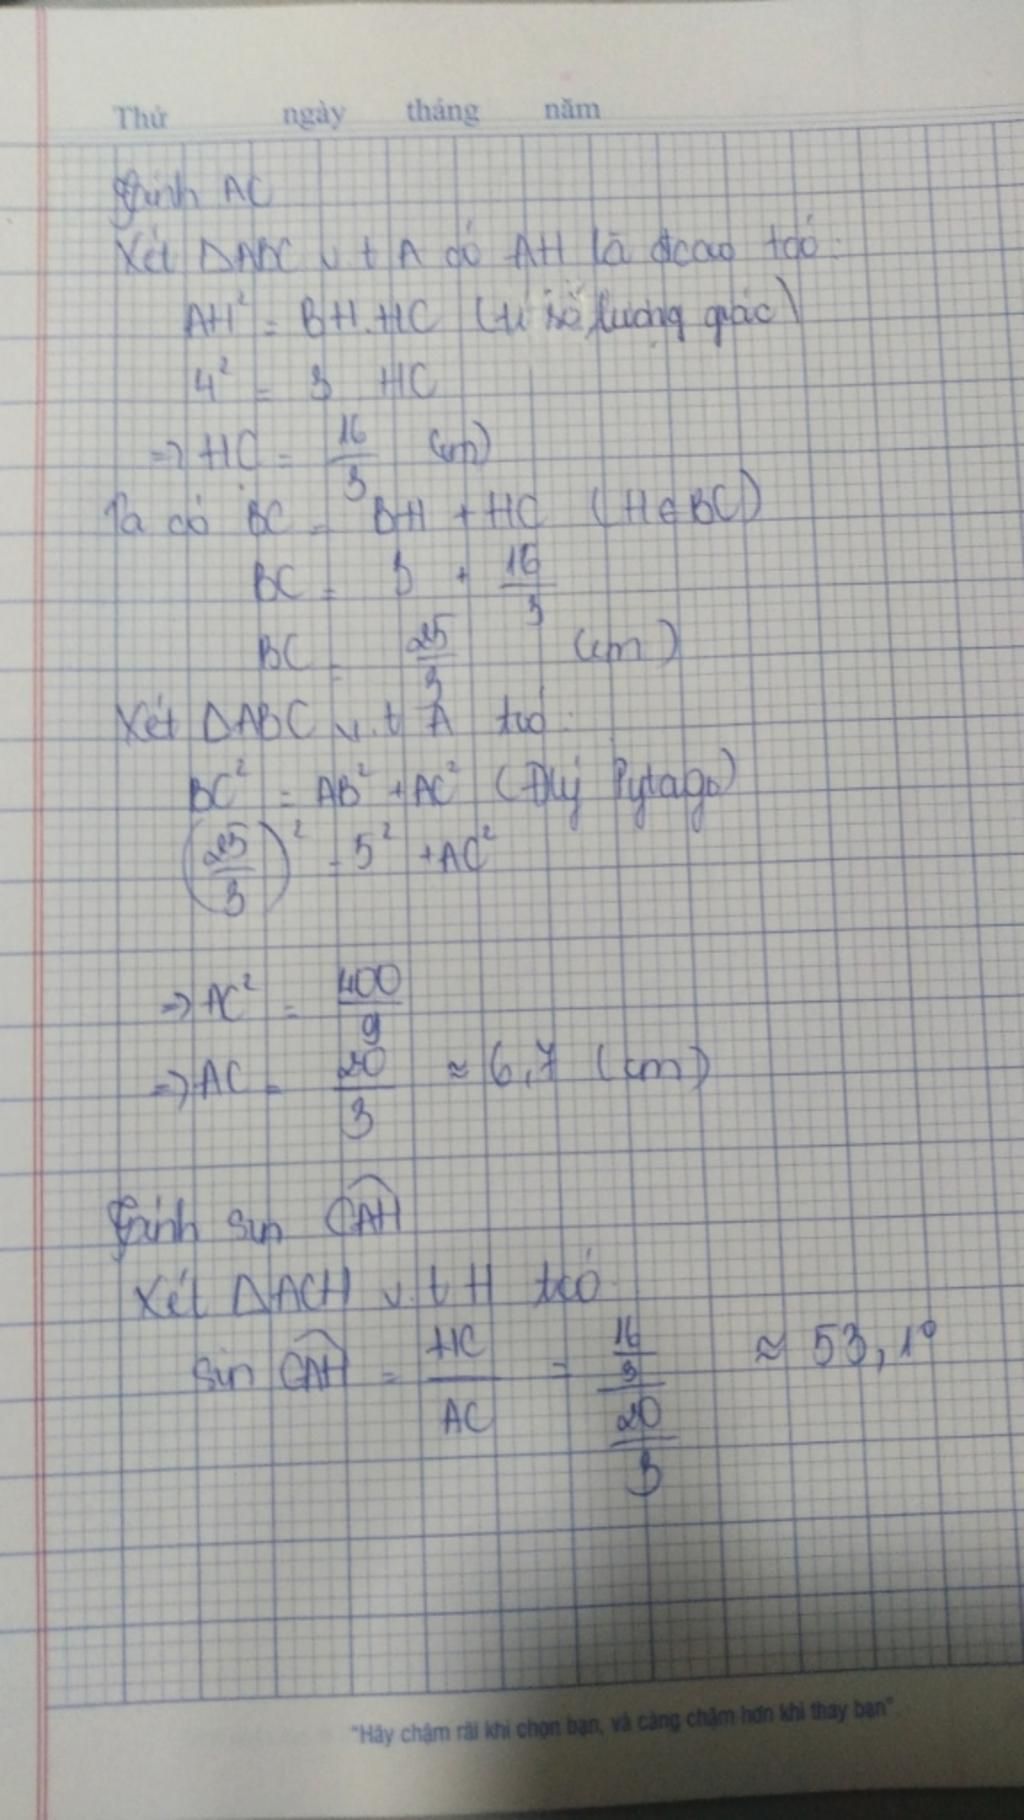 Thứ ngày tháng năm
Tính AC
Xét ΔABC v t A có AH là đcao tcó:
AH² = BH.HC (tỉ số lượng giác)
4² = 3 HC
=> HC = 16/3 (cm)
Ta có BC = BH + HC (H∈BC)
BC = 3 + 16/3
BC = 25/3 (cm)
Xét ΔABC v.t A tcó:
BC² = AB² + AC² (Đlý Pytago)
(25/3)² = 5² + AC²
=> AC² = 400/9
=> AC = 20/3 ≈ 6,7 (cm)
Tính sin CAH
Xét ΔACH v.t H tcó
sin CAH = HC/AC = 16/3 / 20/3 ≈ 53,1°
"Hãy chậm rãi khi chọn bạn, và càng chậm hơn khi thay bạn"